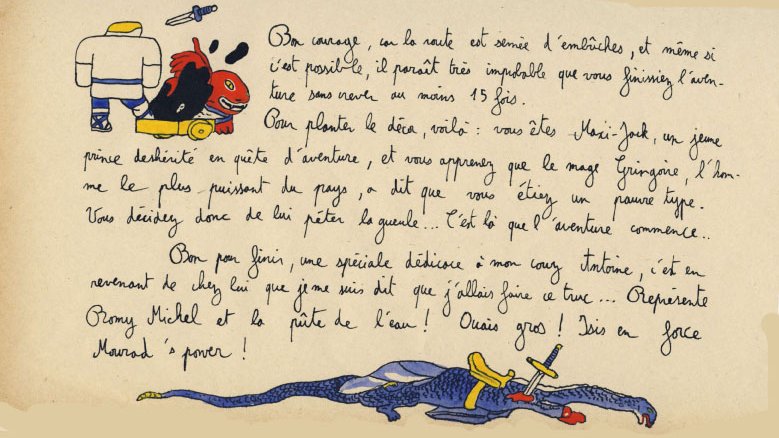 Bon courage, car la route est semée d'embûches, et même si
c'est possible, il paraît très improbable que vous finissiez l'aven-
ture sans crever au moins 15 fois.
Pour planter le déco, voilà : vous êtes Maxi-Jack, un jeune
prince déshérité en quête d'aventure, et vous apprenez que le mage Gringoire, l'hom-
me le plus puissant du pays, a dit que vous étiez un pauvre type.
Vous décidez donc de lui péter la gueule... C'est là que l'aventure commence..
Bon pour finir, une spéciale dédicace à mon couz Antoine, c'est en
revenant de chez lui que je me suis dit que j'allais faire ce truc... Représente
Romy Michel et la pûte de l'eau ! Ouais gros ! Isis en force
Mourad 's power !